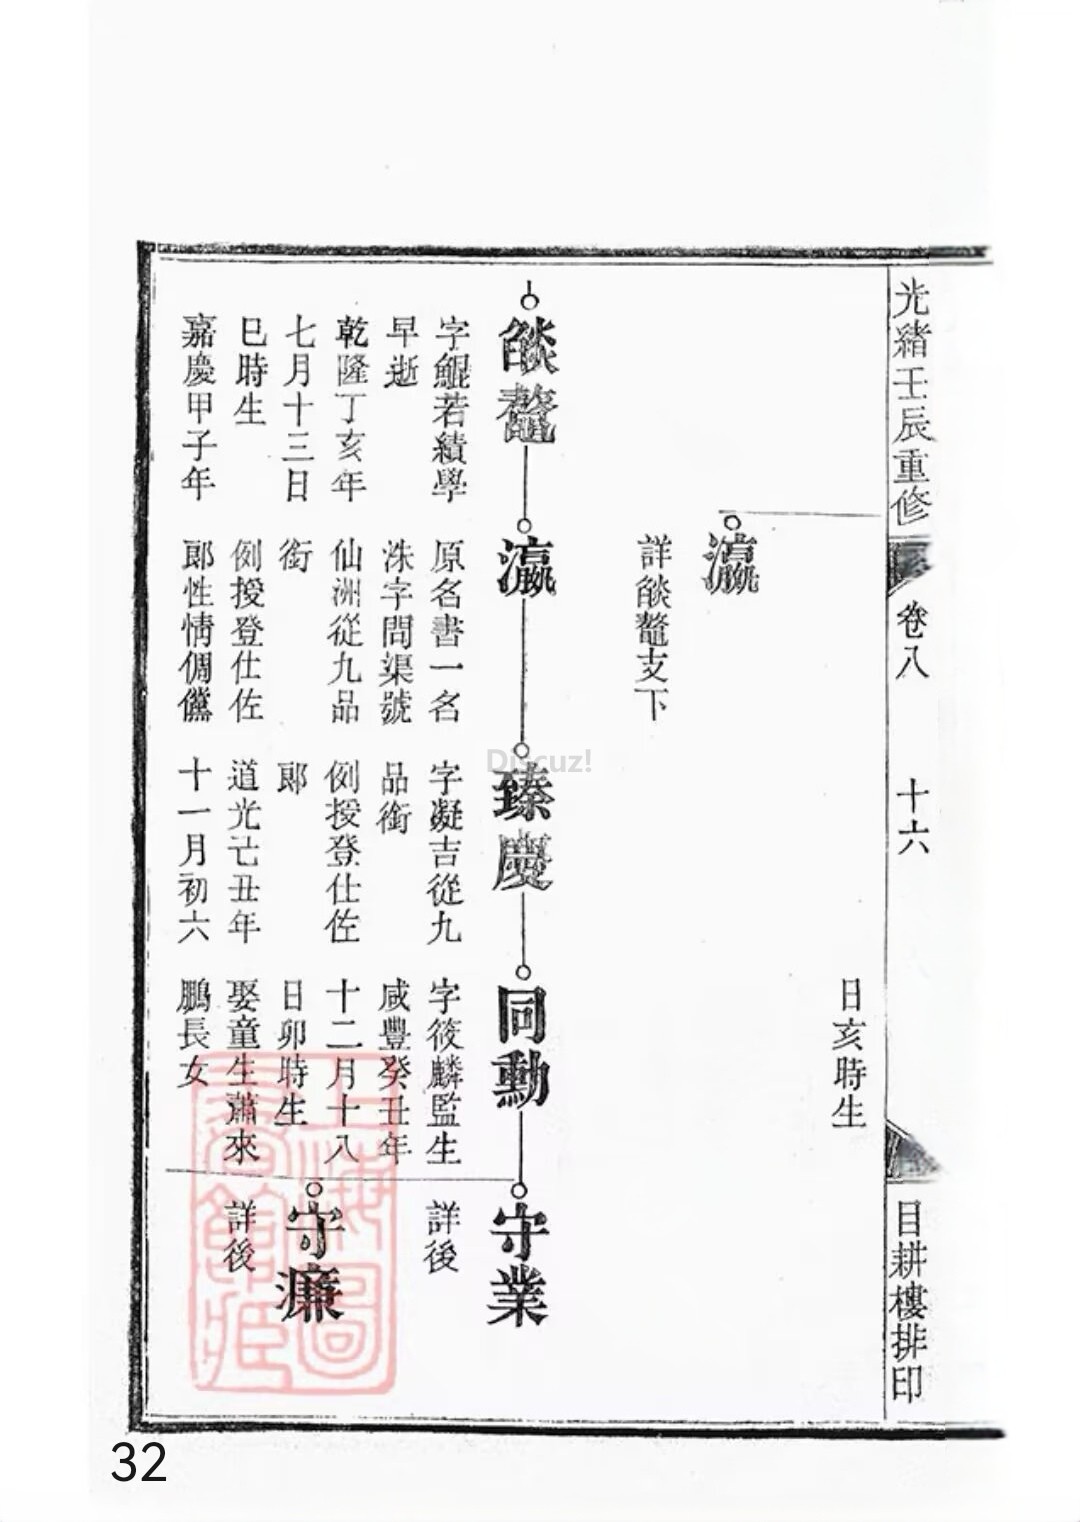 光緒壬辰重修
卷八
十六
目耕樓排印
日亥時生
瀛
詳燄鼇支下
燄鼇
字鯤若績學
早逝
乾隆丁亥年
七月十三日
巳時生
嘉慶甲子年
瀛
原名書一名
洙字問渠號
仙洲從九品
銜
例授登仕佐
郎性情倜儻
臻慶
字凝吉從九
品銜
例授登仕佐
郎
道光己丑年
十一月初六
同勳
字筱麟監生
咸豐癸丑年
十二月十八
日卯時生
娶童生蕭來
鵬長女
守業
詳後
守濂
詳後
上海圖
書館藏
Discuz!
32